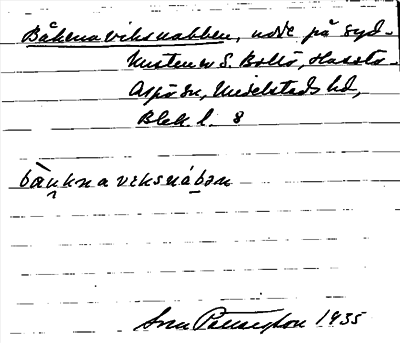 Båkenaviksnabben, udde på syd-
kusten av S. Boltö, Hasslö-
Aspö sn, Medelstads hd,
Blek. l. 8
bàu̯knaviksnábən
1935